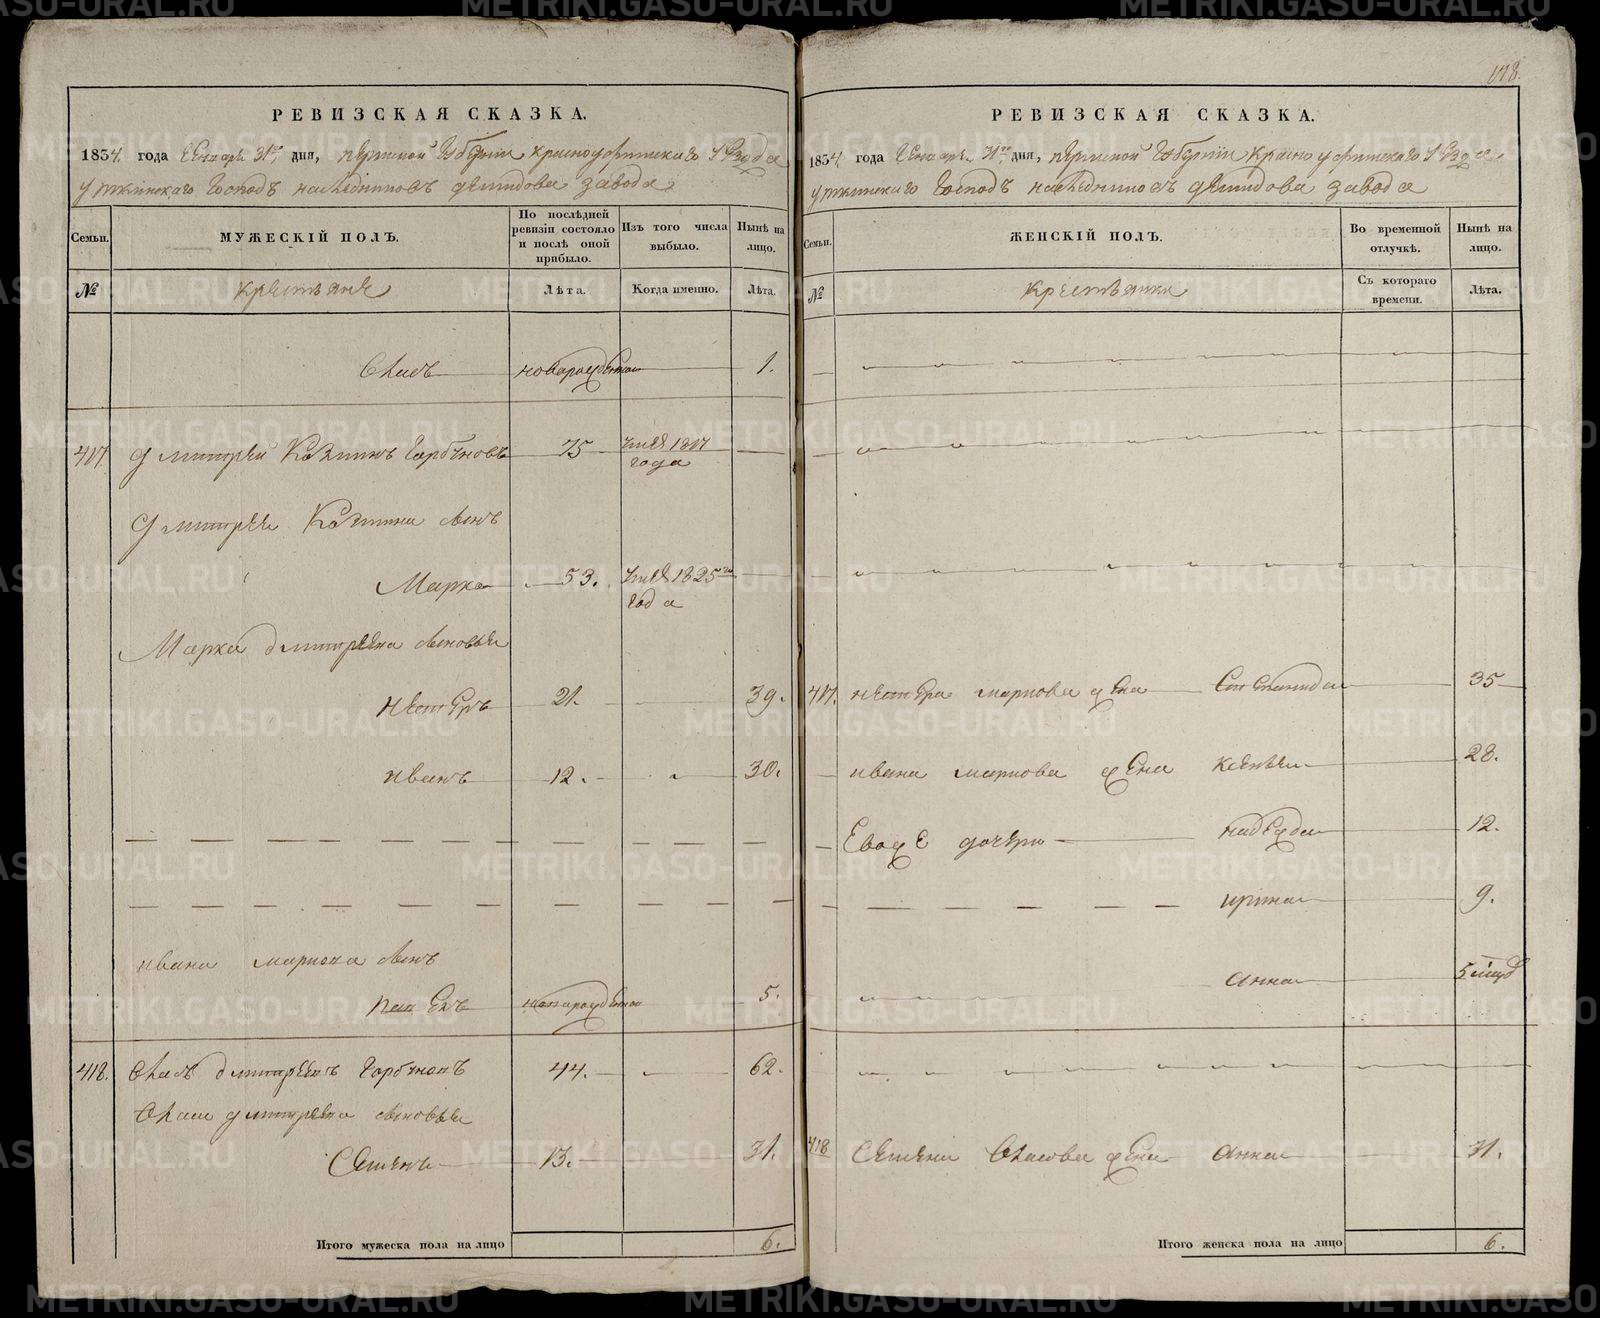 118.
РЕВИЗСКАЯ СКАЗКА.
1834. года Генваря 31го дня, Пермской Губернии Красноуфимскаго Уезда
Уткинскаго Господъ наследниковъ Демидова завода
Семьи.
МУЖЕСКІЙ ПОЛЪ.
По послѣдней ревизіи состояло и послѣ оной прибыло.
Изъ того числа выбыло.
Нынѣ на лицо.
№
Крестьяне
Лѣта.
Когда именно.
Лѣта.
Власъ новорожденной 1.
417. Дмитрей Козминъ Горбуновъ 75 умеръ 1817 года
Дмитрея Козмина сынъ
Марко 53. умеръ 1825го года
Марка Дмитреева сыновья
Нестеръ 21. 39.
Иванъ 12. 30.
Ивана Маркова сынъ
новорожденной 5.
418. Власъ Дмитреевъ Горбуновъ 44. 62.
Власа Дмитреева сыновья
Семенъ 13. 31.
Итого мужеска пола на лицо 6.
РЕВИЗСКАЯ СКАЗКА.
1834. года Генваря 31го дня, Пермской Губернии Красноуфимскаго Уезда
Уткинскаго Господъ наследниковъ Демидова завода
Семьи.
ЖЕНСКІЙ ПОЛЪ.
Во временной отлучкѣ.
Нынѣ на лицо.
№
Крестьянки
Съ котораго времени.
Лѣта.
417. Нестера Маркова жена Степанида 35
Ивана Маркова жена Ксенья 28.
Евоже дочери Надежда 12.
Ирина 9.
Анна 5
418 Семена Власова жена Анна 31.
Итого женска пола на лицо 6.
METRIKI.GASO-URAL.RU